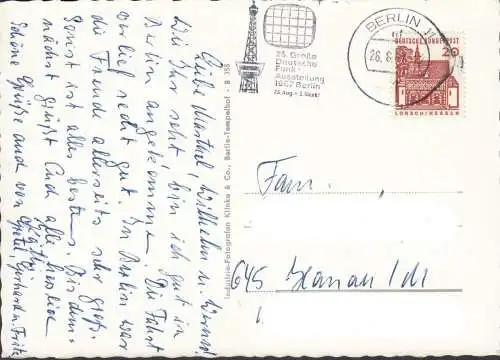 Liebe Marthel, Wilhelm u. Werner!
Wie Ihr seht, bin ich gut in
Berlin angekommen. Die Fahrt
verlief recht gut. In Berlin war
die Freude allerseits sehr groß.
Sonst ist alles bestens. Bis dem-
nächst grüßt Euch alle herzlich
Schöne Grüße auch von Gretel, Gerhard u. Fritz
Industrie-Fotografen Klinke & Co., Berlin-Tempelhof - B 355
25. Große
Deutsche
Funk-
Ausstellung
1967 Berlin
25. Aug. - 3. Sept.
BERLIN
DEUTSCHE BUNDESPOST
LORSCH/HESSEN
Fam.
645 Hanau/